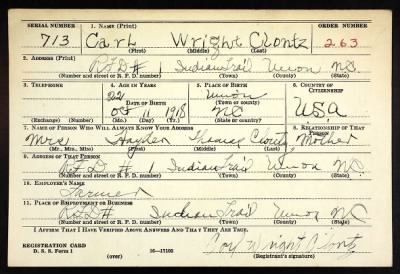 SERIAL NUMBER 1. NAME (Print) ORDER NUMBER
713 Carl Wright Clontz 263
(First) (Middle) (Last)
2. ADDRESS (Print)
R.F.D # 1 Indian Trail Union N.C.
(Number and street or R. F. D. number) (Town) (County) (State)
3. TELEPHONE 4. AGE IN YEARS 5. PLACE OF BIRTH 6. COUNTRY OF CITIZENSHIP
22 Union
DATE OF BIRTH (Town or county)
Oct 1 1918 NC U.S.A
(Exchange) (Number) (Mo.) (Day) (Yr.) (State or country)
7. NAME OF PERSON WHO WILL ALWAYS KNOW YOUR ADDRESS 8. RELATIONSHIP OF THAT PERSON
Mrs Hayden Clontz, Mother
(Mr., Mrs., Miss) (First) (Middle) (Last)
9. ADDRESS OF THAT PERSON
R.F.D # 1 Indian Trail Union N.C.
(Number and street or R. F. D. number) (Town) (County) (State)
10. EMPLOYER'S NAME
Farmer
11. PLACE OF EMPLOYMENT OR BUSINESS
R.F.D # 1 Indian Trail Union N.C
(Number and street or R. F. D. number) (Town) (County) (State)
I AFFIRM THAT I HAVE VERIFIED ABOVE ANSWERS AND THAT THEY ARE TRUE.
REGISTRATION CARD
D. S. S. Form 1 16—17105 Wright Clontz
(over) (Registrant's signature)